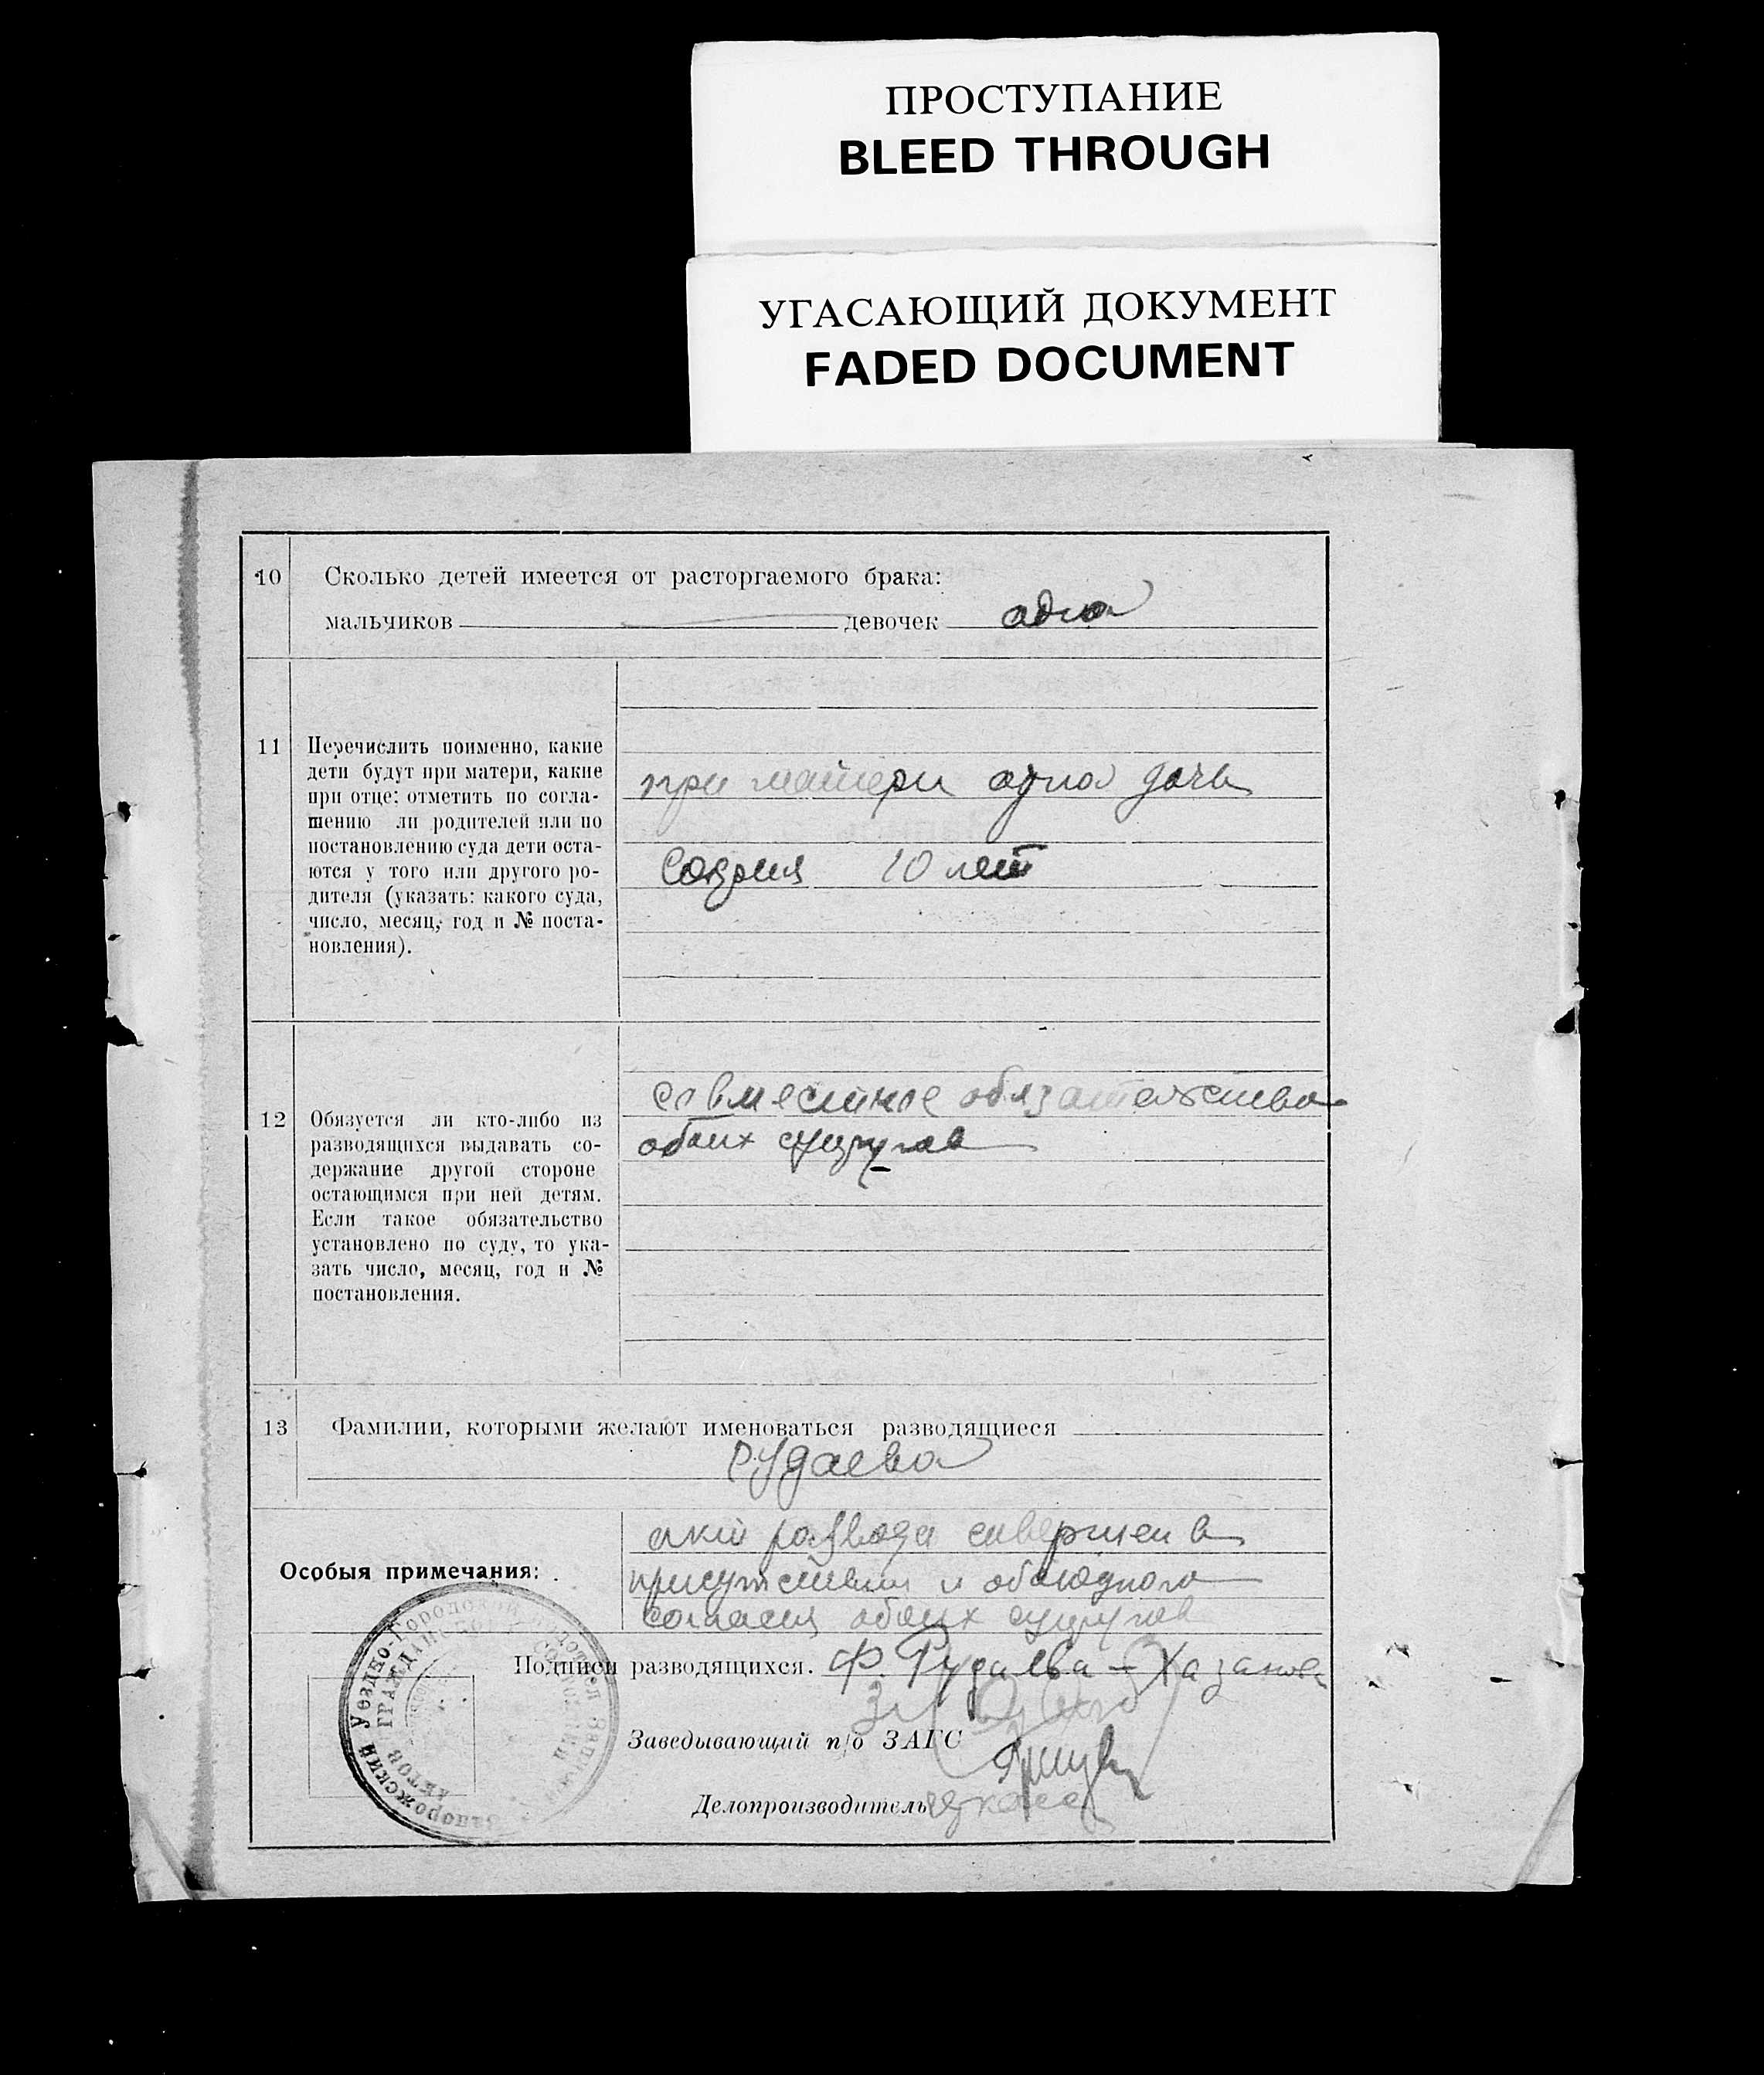 ПРОСТУПАНИЕ
BLEED THROUGH
УГАСАЮЩИЙ ДОКУМЕНТ
FADED DOCUMENT
10 Сколько детей имеется от расторгаемого брака:
мальчиков — девочек одна
11 Перечислить поименно, какие
дети будут при матери, какие
при отце: отметить по согла-
шению ли родителей или по
постановлению суда дети оста-
ются у того или другого ро-
дителя (указать: какого суда,
число, месяц, год и № поста-
новления).
при матери одна дочь
София 10 лет
12 Обязуется ли кто-либо из
разводящихся выдавать со-
держание другой стороне
остающимся при ней детям.
Если такое обязательство
установлено по суду, то ука-
зать число, месяц, год и №
постановления.
совместное обязательство
обоих супругов
13 Фамилии, которыми желают именоваться разводящиеся
Рудаева
Особыя примечания:
акт развода совершен в
присутствии и обоюдного
согласия обоих супругов
Подписи разводящихся. Ф. Рудаева-Хазанова
Заведывающий п/о ЗАГС
Делопроизводитель
Запорожский Уездно-Городской Подотдел Записи
АКТОВ ГРАЖДАНСКОГО СОСТОЯНИЯ